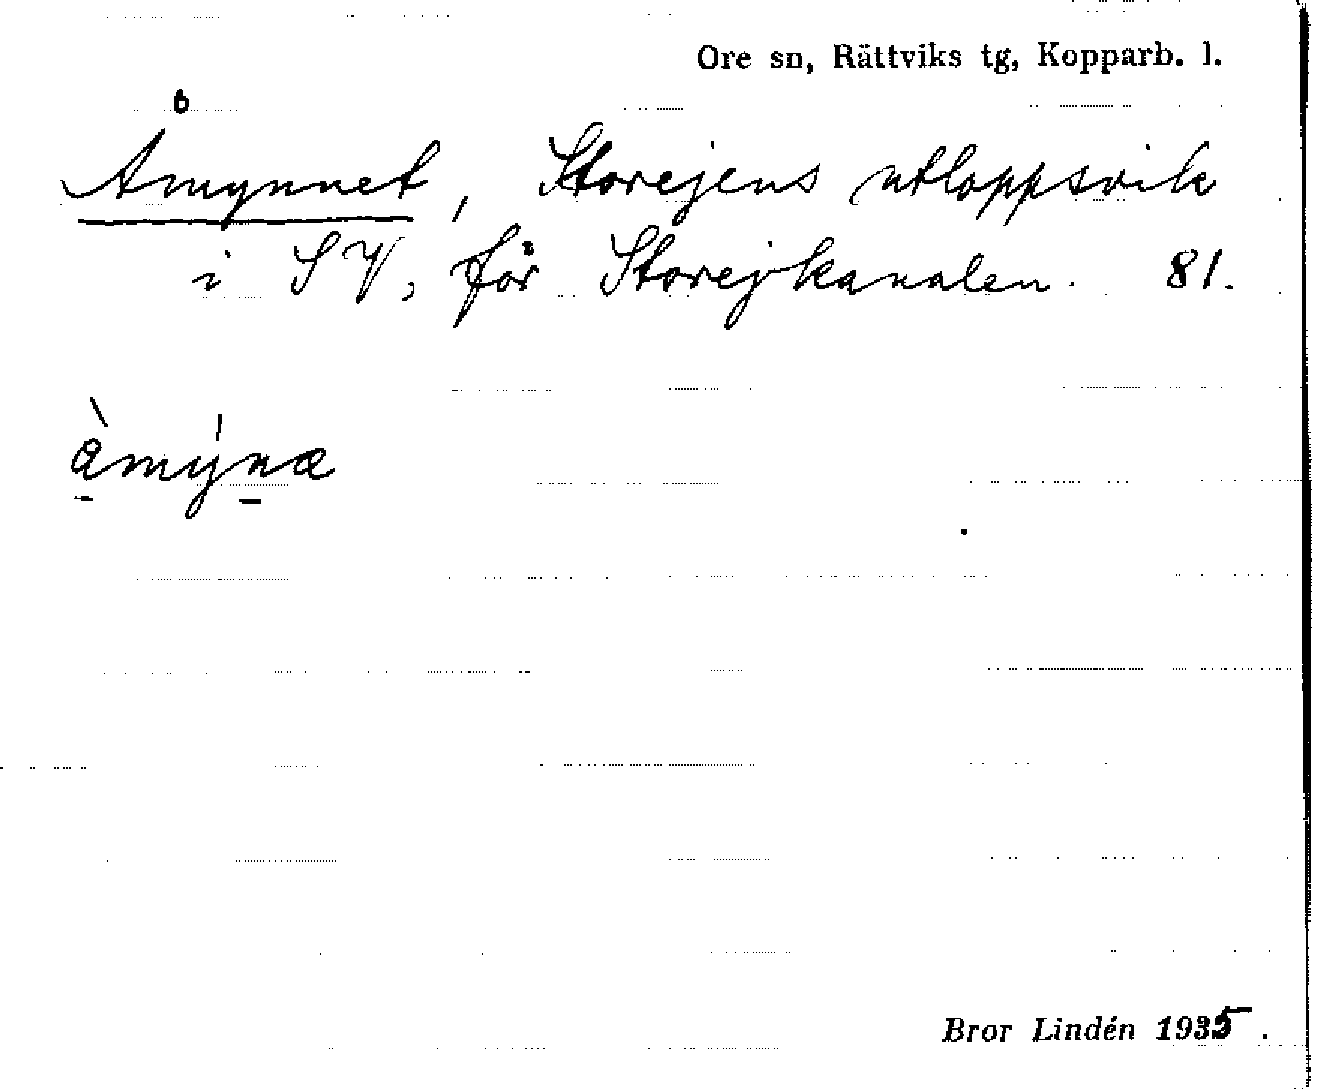 Ore sn, Rättviks tg, Kopparb. l.
Åmynnet, Storejens utloppsvik
i SV, för Storejkanalen. 81.
àmýnæ
Bror Lindén 1935.